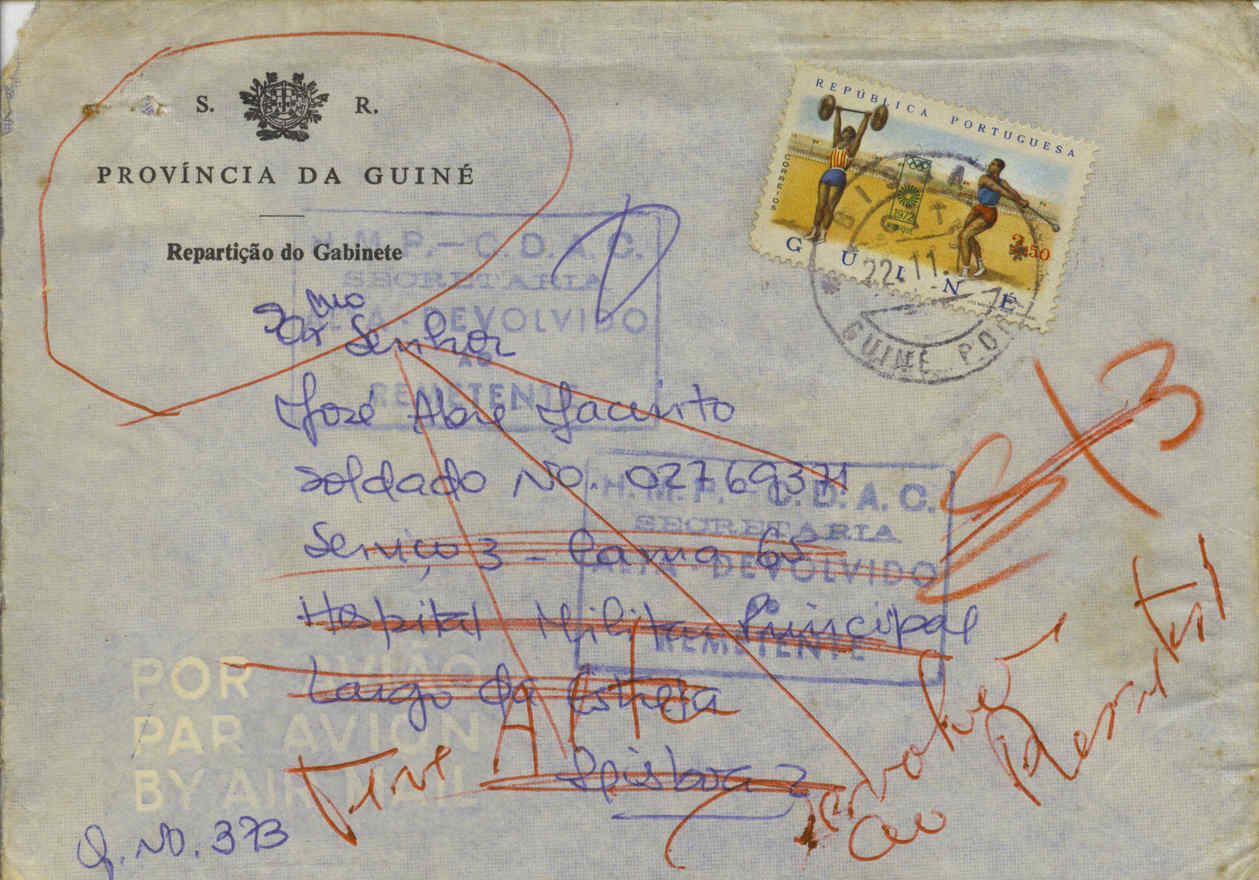 S. R.
PROVÍNCIA DA GUINÉ
Repartição do Gabinete
REPÚBLICA PORTUGUESA
CORREIOS
1972
3$50
GUINÉ
22.11.
GUINÉ POR
H.M.P. – C.D.A.C.
SECRETARIA
ALTA - DEVOLVIDO
AO
REMETENTE
Exmo
Senhor
José Jacinto
Soldado No. 02769371
Serviço 3 – Cama 65
Hospital Militar Principal
Largo da Estrela
Lisboa 2
H.M.P. – C.D.A.C.
SECRETARIA
ALTA - DEVOLVIDO
REMETENTE
POR AVIÃO
PAR AVION
BY AIR MAIL
Teve
Alta
ao
No. 373